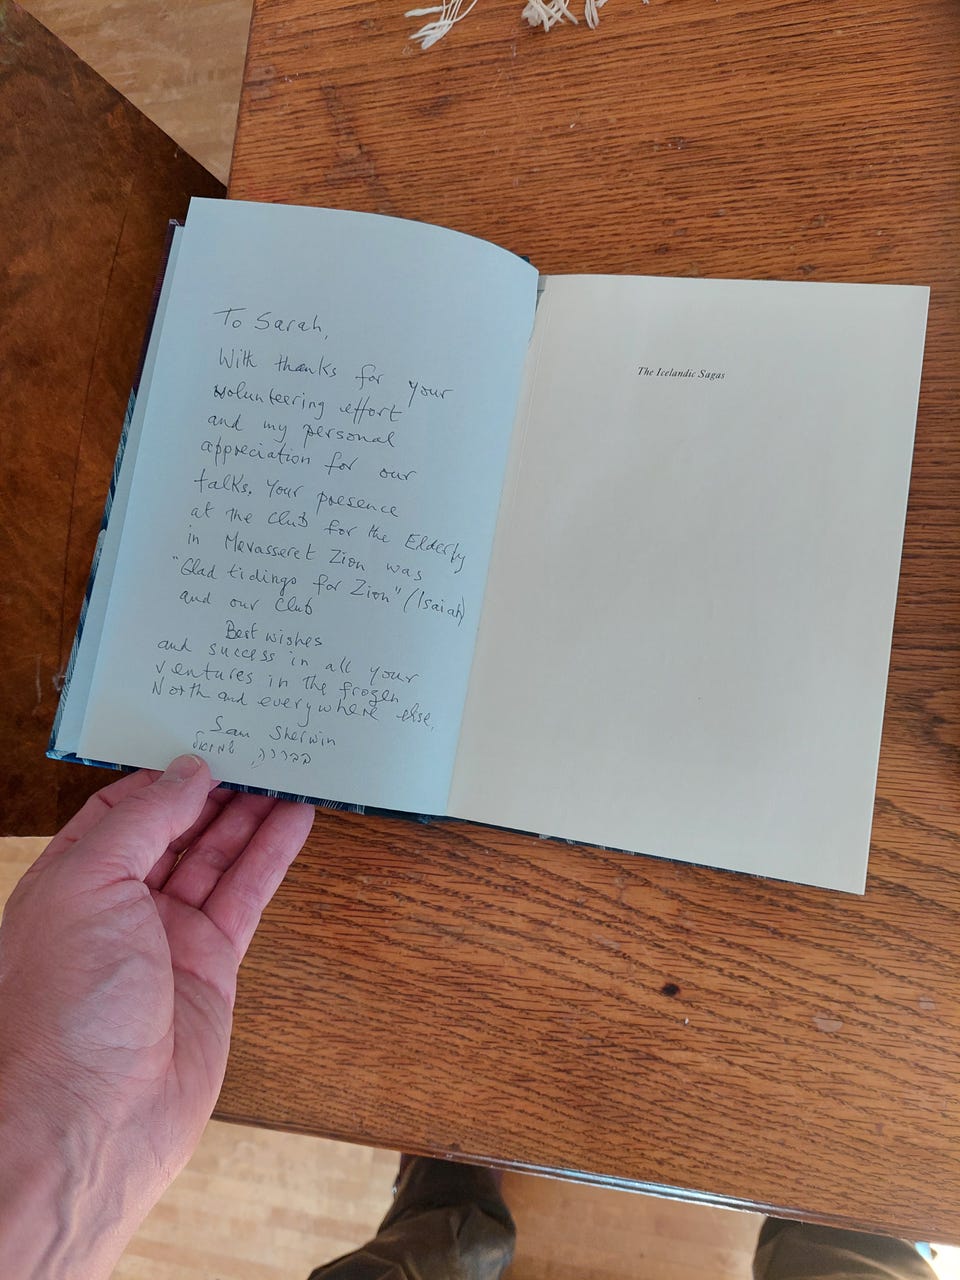 To Sarah,
With thanks for your
volunteering effort
and my personal
appreciation for our
talks. Your presence
at the Club for the Elderly
in Mevasseret Zion was
"Glad tidings for Zion" (Isaiah)
and our Club
Best wishes
and success in all your
ventures in the frozen
North and everywhere else.
Sam Sherwin
בברכה, שמואל
The Icelandic Sagas